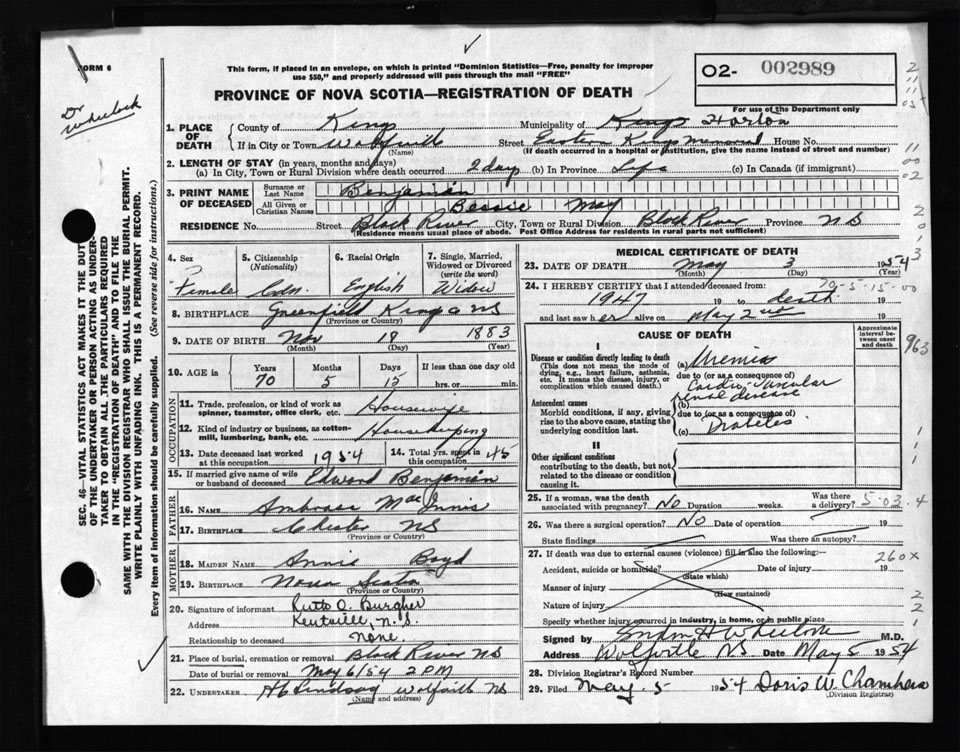 FORM 6
Dr Wheelock
This form, if placed in an envelope, on which is printed "Dominion Statistics—Free, penalty for improper
use $50," and properly addressed will pass through the mail "FREE"
O2- 002989
PROVINCE OF NOVA SCOTIA—REGISTRATION OF DEATH
For use of the Department only
1. PLACE OF DEATH
County of Kings Municipality of Kings Horton
If in City or Town Wolfville Street Eastern Kings Memorial House No.
(Name) (If death occurred in a hospital or institution, give the name instead of street and number)
2. LENGTH OF STAY (in years, months and days)
(a) In City, Town or Rural Division where death occurred 2 days (b) In Province Life (c) In Canada (if immigrant)
3. PRINT NAME OF DECEASED
Surname or Last Name Benjamin
All Given or Christian Names Bessie May
RESIDENCE No. Street Black River City, Town or Rural Division Black River Province N S
(Residence means usual place of abode. Post Office Address for residents in rural parts not sufficient)
4. Sex Female
5. Citizenship (Nationality) Cdn.
6. Racial Origin English
7. Single, Married, Widowed or Divorced (write the word) Widow
8. BIRTHPLACE Greenfield Kings NS
(Province or Country)
9. DATE OF BIRTH Nov 19 1883
(Month) (Day) (Year)
10. AGE in Years 70 Months 5 Days 15 If less than one day old
hrs. or min.
OCCUPATION
11. Trade, profession, or kind of work as spinner, teamster, office clerk, etc. Housewife
12. Kind of industry or business, as cotton-mill, lumbering, bank, etc. Housekeeping
13. Date deceased last worked at this occupation 1954
14. Total yrs. spent in this occupation 45
15. If married give name of wife or husband of deceased Edward Benjamin
FATHER
16. NAME Ambrose MacInnis
17. BIRTHPLACE Chester NS
(Province or Country)
MOTHER
18. MAIDEN NAME Annie Boyd
19. BIRTHPLACE Nova Scotia
(Province or Country)
20. Signature of informant Ruth O. Burgher
Address Kentville, N. S.
Relationship to deceased None.
21. Place of burial, cremation or removal Black River NS
Date of burial or removal May 6/54 2 PM
22. UNDERTAKER Lindsay Wolfville NS
(Name and address)
MEDICAL CERTIFICATE OF DEATH
23. DATE OF DEATH May 3 1954
(Month) (Day) (Year)
24. I HEREBY CERTIFY that I attended deceased from:
70-5-15-00
1947 19 to death 19
and last saw her alive on May 2nd 19
CAUSE OF DEATH
Approximate interval between onset and death
I
Disease or condition directly leading to death
(This does not mean the mode of dying, e.g., heart failure, asthenia, etc. It means the disease, injury, or complication which caused death.)
(a) Uremia
due to (or as a consequence of)
Cardio-vascular
(b) renal disease
Antecedent causes
Morbid conditions, if any, giving rise to the above cause, stating the underlying condition last.
due to (or as a consequence of)
(c) Diabetes
II
Other significant conditions
contributing to the death, but not related to the disease or condition causing it.
963
25. If a woman, was the death associated with pregnancy? NO Duration weeks. Was there a delivery?
5-03-4
26. Was there a surgical operation? NO Date of operation 19
State findings Was there an autopsy?
27. If death was due to external causes (violence) fill in also the following:—
260X
Accident, suicide or homicide? Date of injury 19
(State which)
Manner of injury
(How sustained)
Nature of injury
Specify whether injury occurred in industry, in home, or in public place
Signed by H Wheelock M.D.
Address Wolfville NS Date May 5 1954
28. Division Registrar's Record Number
29. Filed May. 5 1954 Doris W. Chambers
(Division Registrar)
SEC. 46—VITAL STATISTICS ACT MAKES IT THE DUTY
OF THE UNDERTAKER OR PERSON ACTING AS UNDER-
TAKER TO OBTAIN ALL THE PARTICULARS REQUIRED
IN THE "REGISTRATION OF DEATH" AND TO FILE THE
SAME WITH THE DIVISION REGISTRAR WHO SHALL ISSUE THE BURIAL PERMIT.
WRITE PLAINLY WITH UNFADING INK. THIS IS A PERMANENT RECORD.
Every item of information should be carefully supplied. (See reverse side for instructions.)